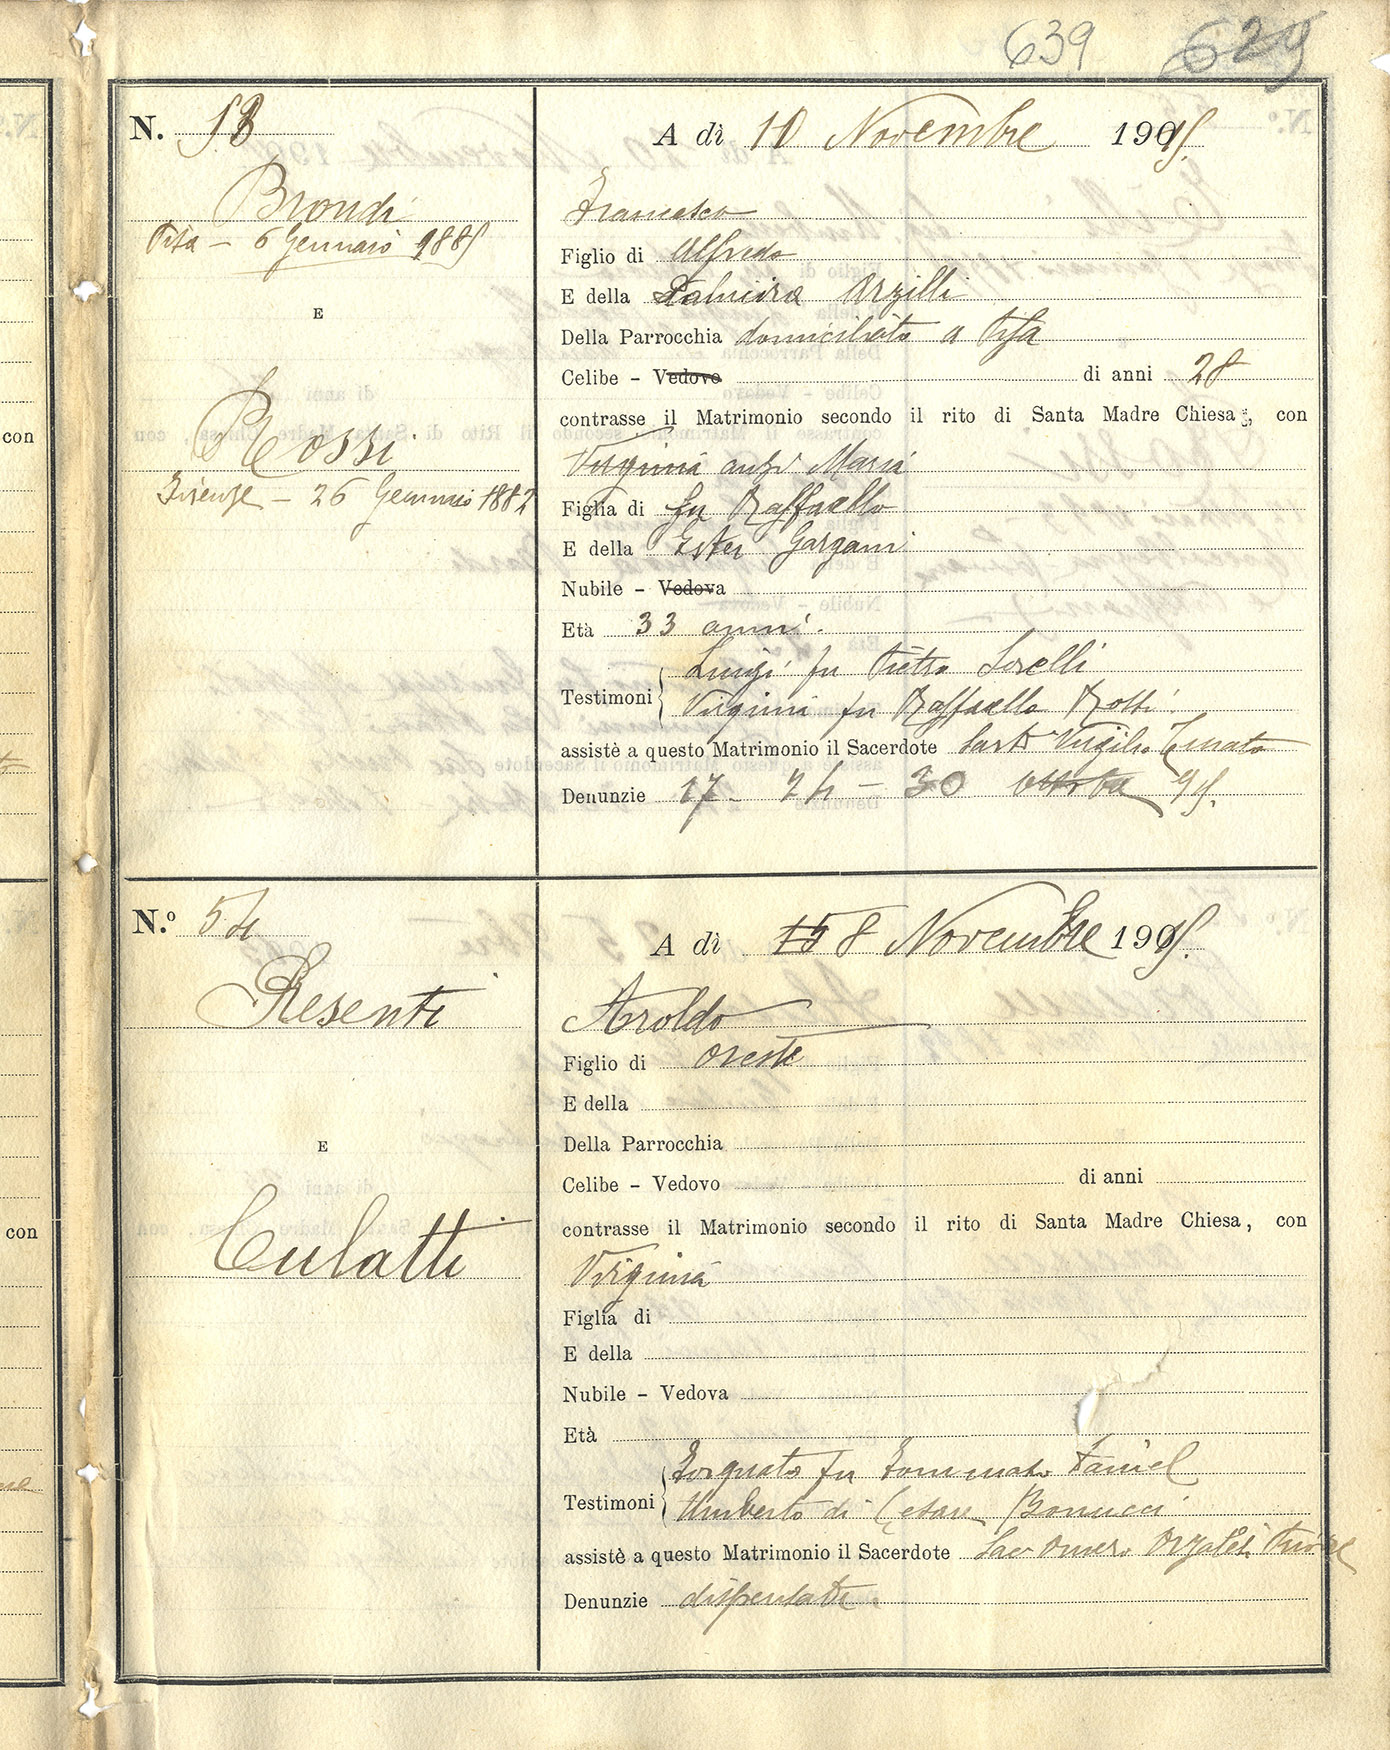 639 629
N. 53
A dì 10 Novembre 1915.
Brondi
Pisa – 6 Gennaio 1885
E
Rossi
Firenze – 26 Gennaio 1882
Francesco
Figlio di Alfredo
E della Palmira Orzilli
Della Parrocchia domiciliato a Pisa
Celibe – Vedovo di anni 28
contrasse il Matrimonio secondo il rito di Santa Madre Chiesa, con
Virginia anzi Maria
Figlia di fu Raffaello
E della Ester Gargani
Nubile – Vedova
Età 33 anni.
Testimoni Luigi fu Pietro Sorelli
Virginia fu Raffaello Rossi
assistè a questo Matrimonio il Sacerdote Virgilio
Denunzie 17 – 24 – 30 15.
con
N.º 54
A dì 15 8 Novembre 1915.
Resenti
E
Culatti
Aroldo
Figlio di Oreste
E della
Della Parrocchia
Celibe – Vedovo di anni
contrasse il Matrimonio secondo il rito di Santa Madre Chiesa, con
Virginia
Figlia di
E della
Nubile – Vedova
Età
Testimoni Torquato fu Tommaso Daniel
Umberto di Cesare Bonucci
assistè a questo Matrimonio il Sacerdote Sac Omero Orzalesi Priore
Denunzie dispensate
con